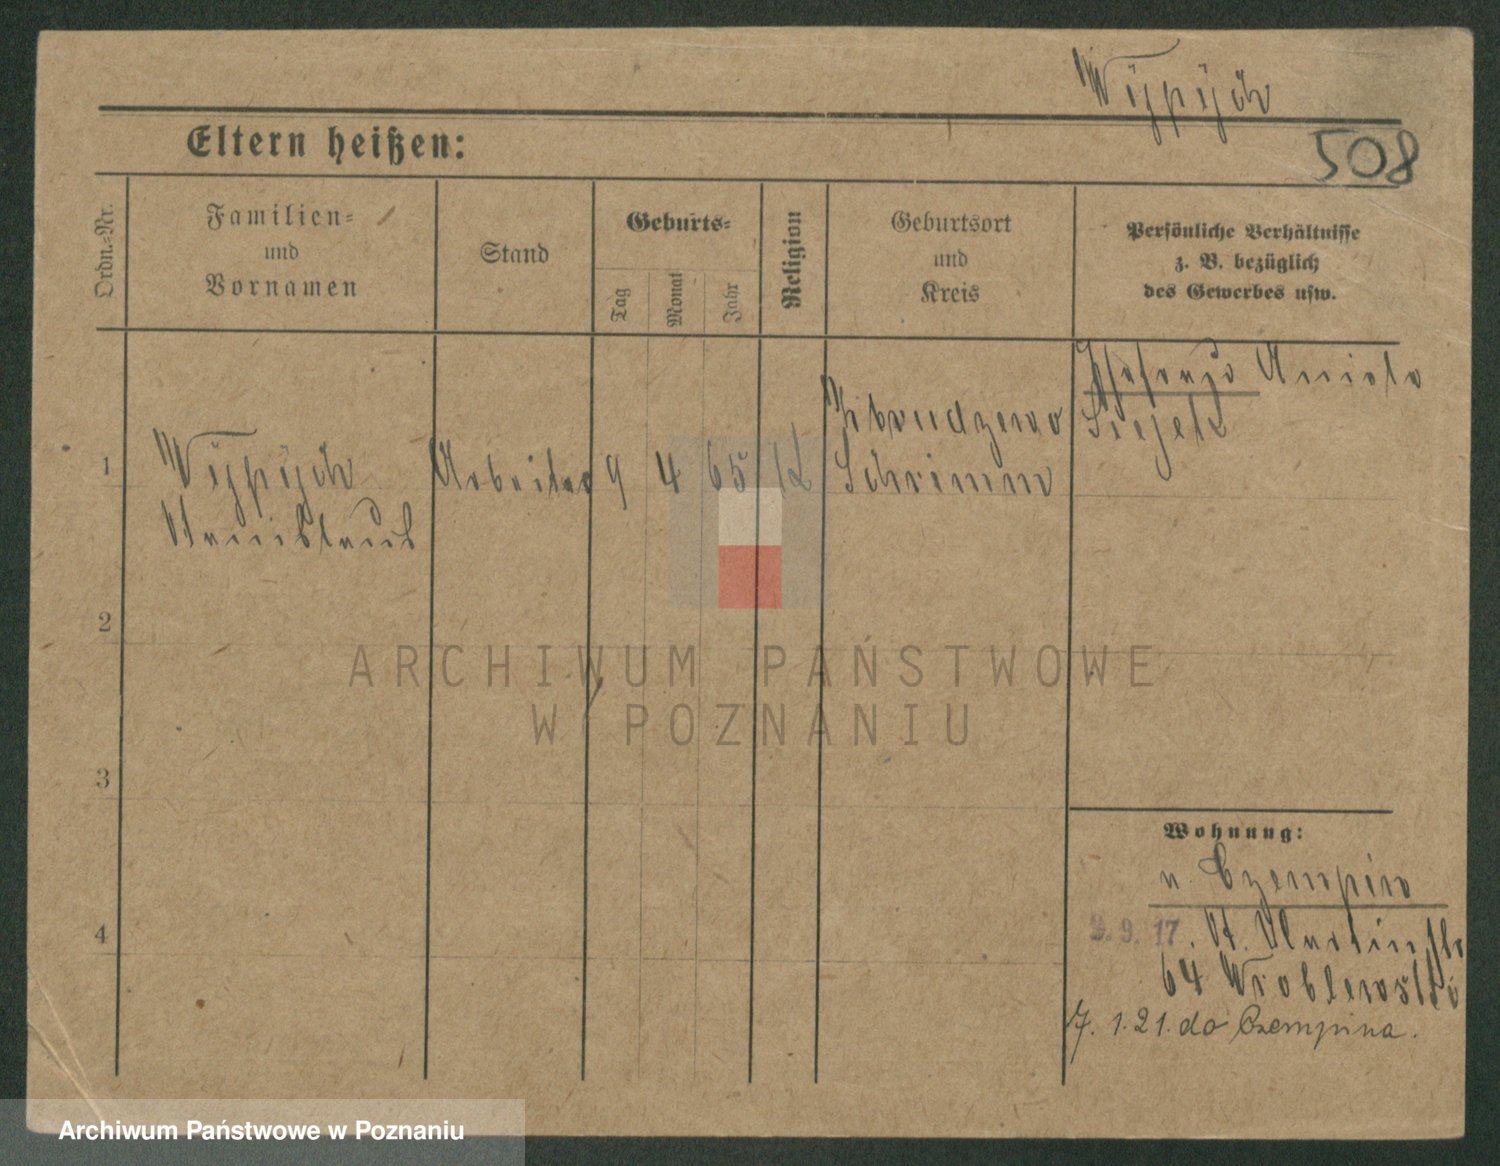 Wÿpÿch
508
Eltern heißen:
Ordn.-Nr.
Familien-
und
Vornamen
Stand
Geburts-
Tag
Monat
Jahr
Religion
Geburtsort
und
Kreis
Persönliche Verhältnisse
z. B. bezüglich
des Gewerbes usw.
1
Wÿpÿch
Stanislaus
Arbeiter
9
4
65
K
Zbrudzewo
Schrimm
Aniela
2
3
4
Wohnung:
n. Czempin
9. 9. 17. St. Martinstr
64 Wroblewski
7. 1. 21. do Czempina.
ARCHIWUM PAŃSTWOWE
W POZNANIU
Archiwum Państwowe w Poznaniu